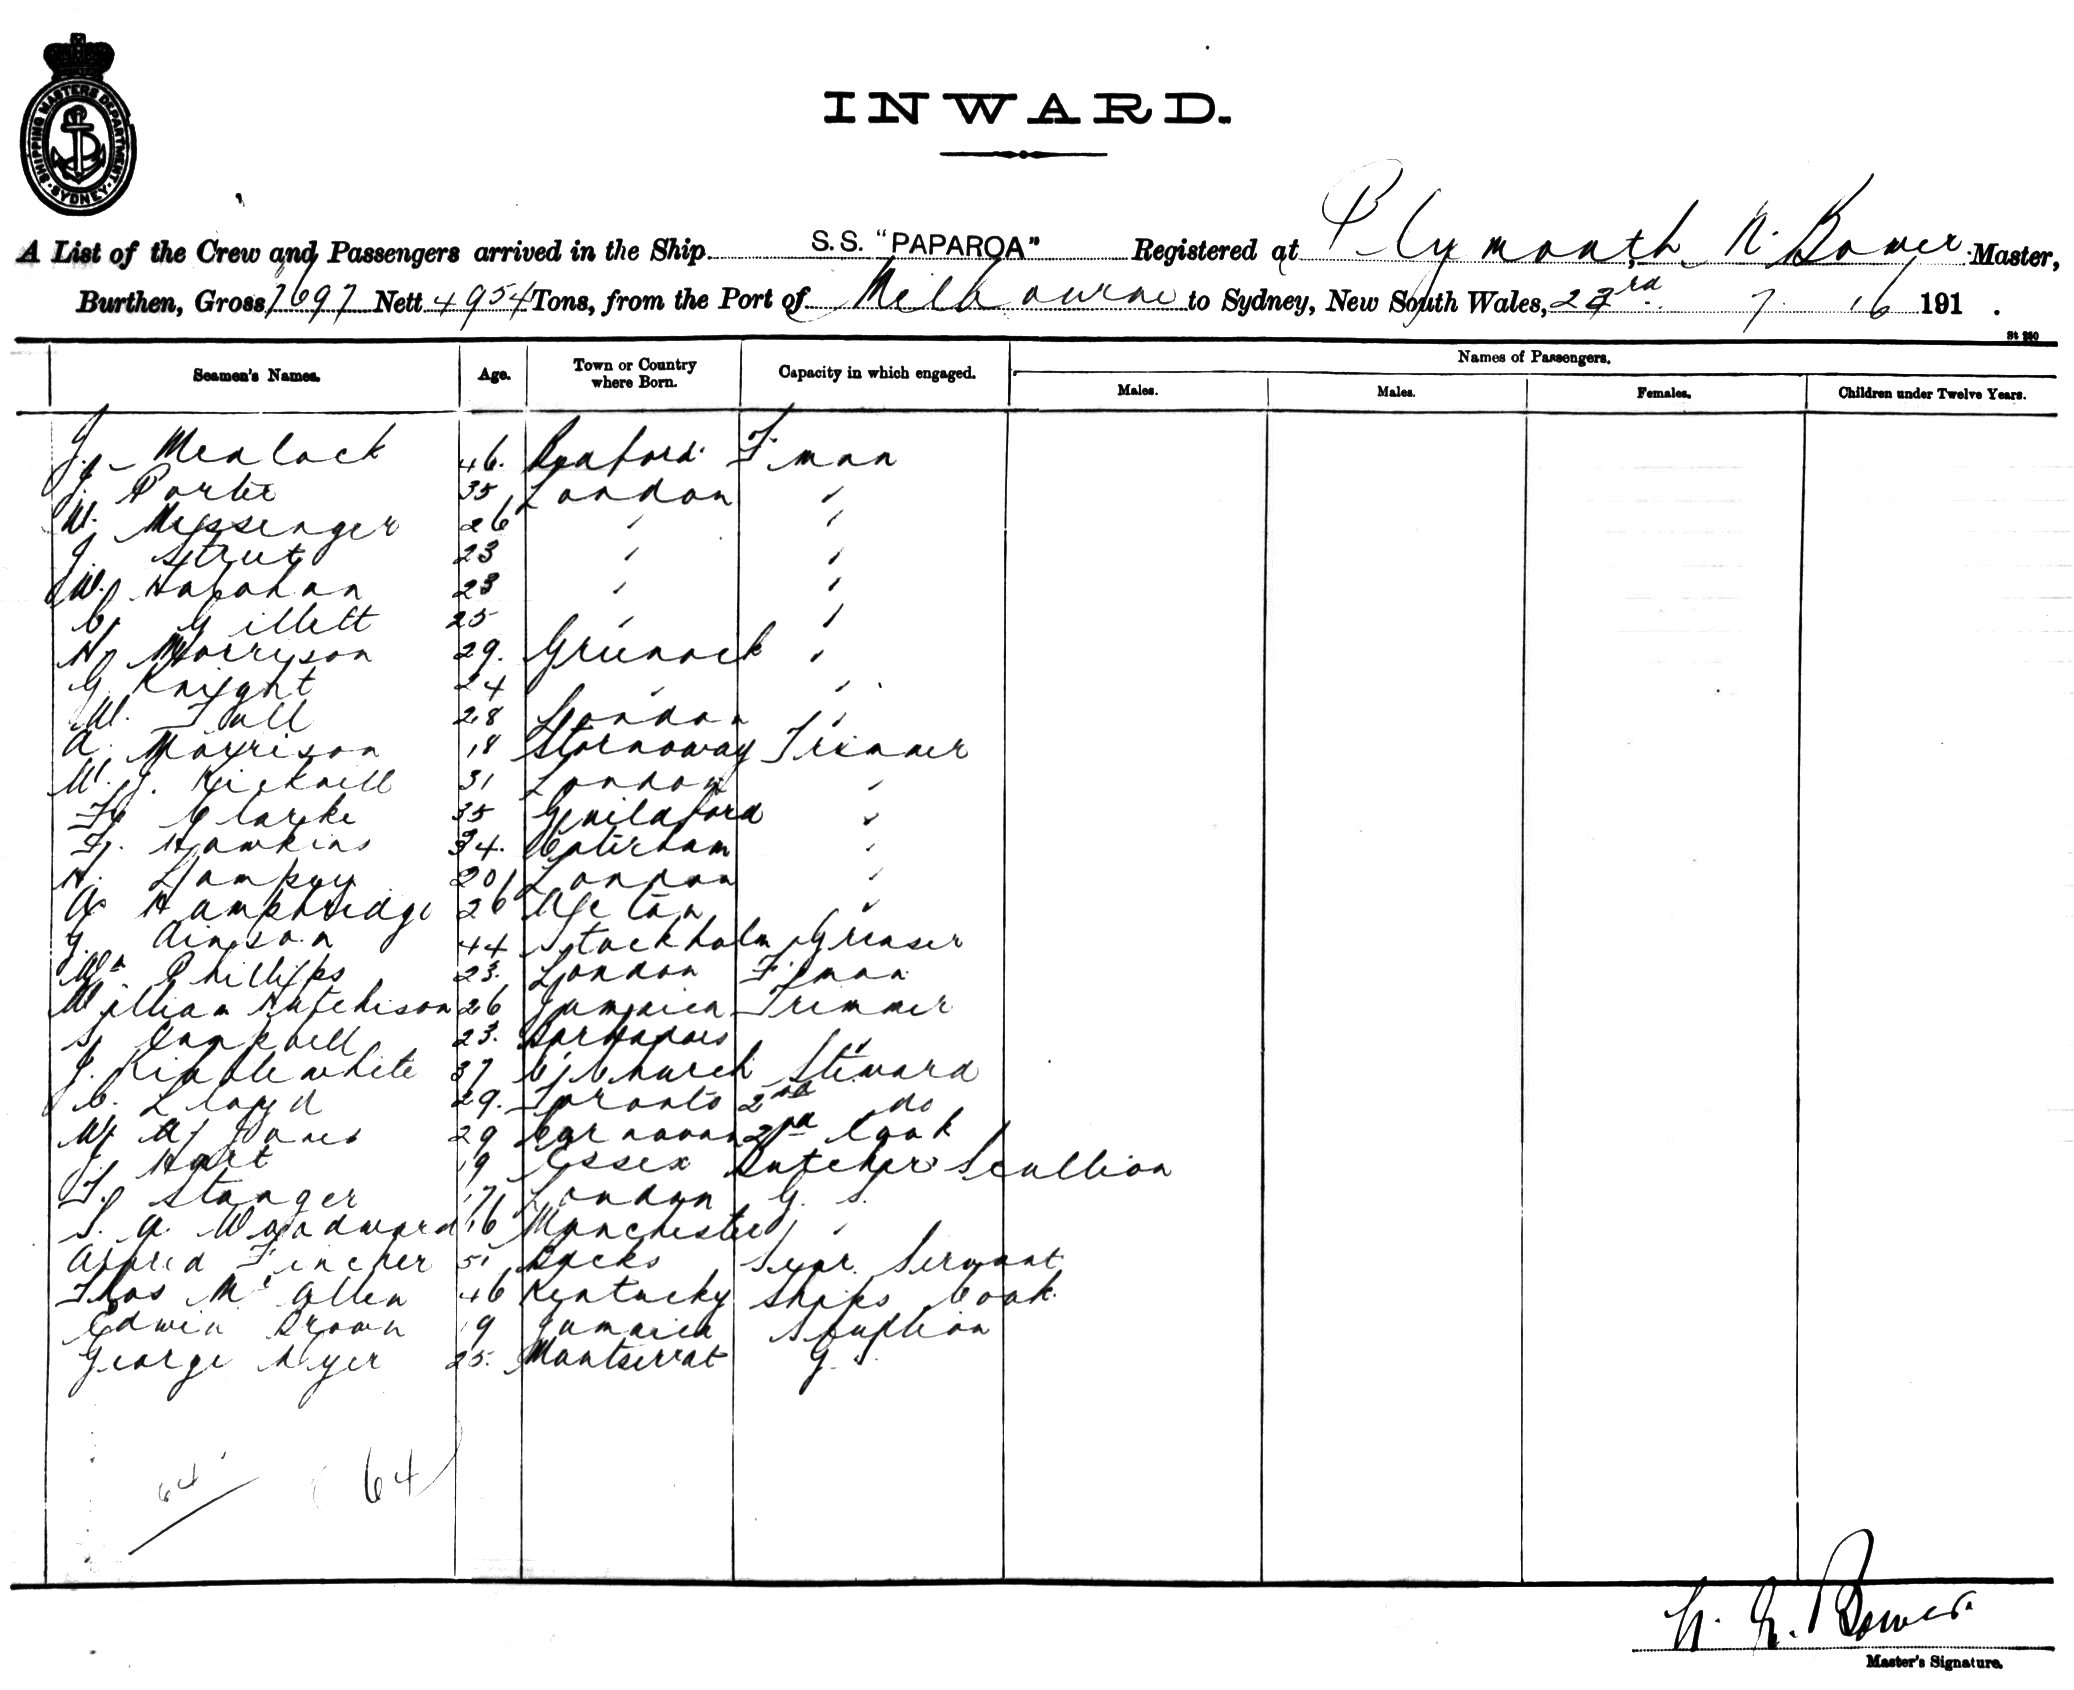 SHIPPING MASTERS DEPARTMENT · SYDNEY ·
INWARD.
A List of the Crew and Passengers arrived in the Ship S.S. "PAPAROA" Registered at Plymouth N. Bower Master,
Burthen, Gross 7697 Nett 4954 Tons, from the Port of Melbourne to Sydney, New South Wales, 23rd 7 16 191 .
St 250
Seamen's Names. Age. Town or Country where Born. Capacity in which engaged. Names of Passengers.
Males. Males. Females. Children under Twelve Years.
J. Menlock 46. F. man
J. Porter 35 London "
W. Messenger 26 " "
J. Strut 23 " "
W. Hanahan 23 " "
C. Gillett 25 " "
N. Morrison 29. Greenock "
G. Knight 24 " "
W. Full 28 London "
A. Morrison 18 Stornoway Trimmer
W. J. Bicknell 31 London "
F. Clarke 35 Guildford "
F. Hawkins 34. Caterham "
H. Lampey 20 London "
A. Hambridge 26 "
44 Stockholm Greaser
Wm Phillips 23. London F. man
William Hutchison 26 Jamaica Trimmer
S. 23. Barbadoes "
J. Kibblewhite 37 C. Church Steward
C. Lloyd 29. Toronto 2nd do
W. A. Jones 29 Carnavon 2nd Cook
J. Hart 19 Essex Butcher Scullion
T. Stanger 17 London G. S.
S. A. Woodward 16 Manchester "
Alfred Fincher 51 Bucks Supr. Servant
Thos McAllen 46 Kentucky Ships Cook
Edwin Brown 19 Jamaica Scullion
George Dyer 25. Montserrat G. S.
64 64
N. Bower
Master's Signature.